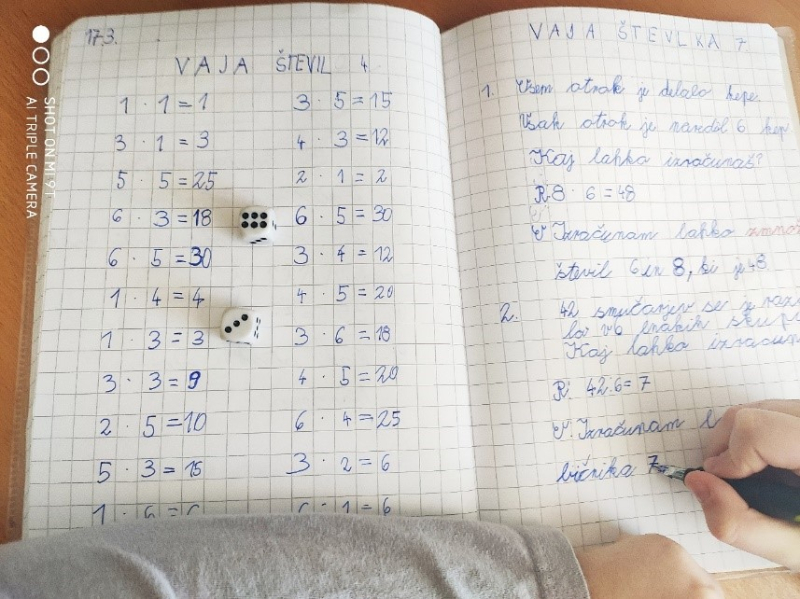 173.
VAJA ŠTEVIL 4
1 · 1 = 1
3 · 1 = 3
5 · 5 = 25
6 · 3 = 18
6 · 5 = 30
1 · 4 = 4
1 · 3 = 3
3 · 3 = 9
2 · 5 = 10
5 · 3 = 15
1 · 6 = 6
3 · 5 = 15
4 · 3 = 12
2 · 1 = 2
6 · 5 = 30
3 · 4 = 12
4 · 5 = 20
3 · 6 = 18
4 · 5 = 20
6 · 4 = 25
3 · 2 = 6
6 · 1 = 6
VAJA ŠTEVLKA 7
1. otrok je delalo kepe.
Vsak otrok je naredil 6 kep
Kaj lahko izračunaš?
R: 8 · 6 = 48
Izračunam lahko
števil 6 in 8, ki je 48
2. 42 smučarjev se je
Kaj lahko
R: 42:6= 7
Izračunam
7
SHOT ON MI 9T
AI TRIPLE CAMERA